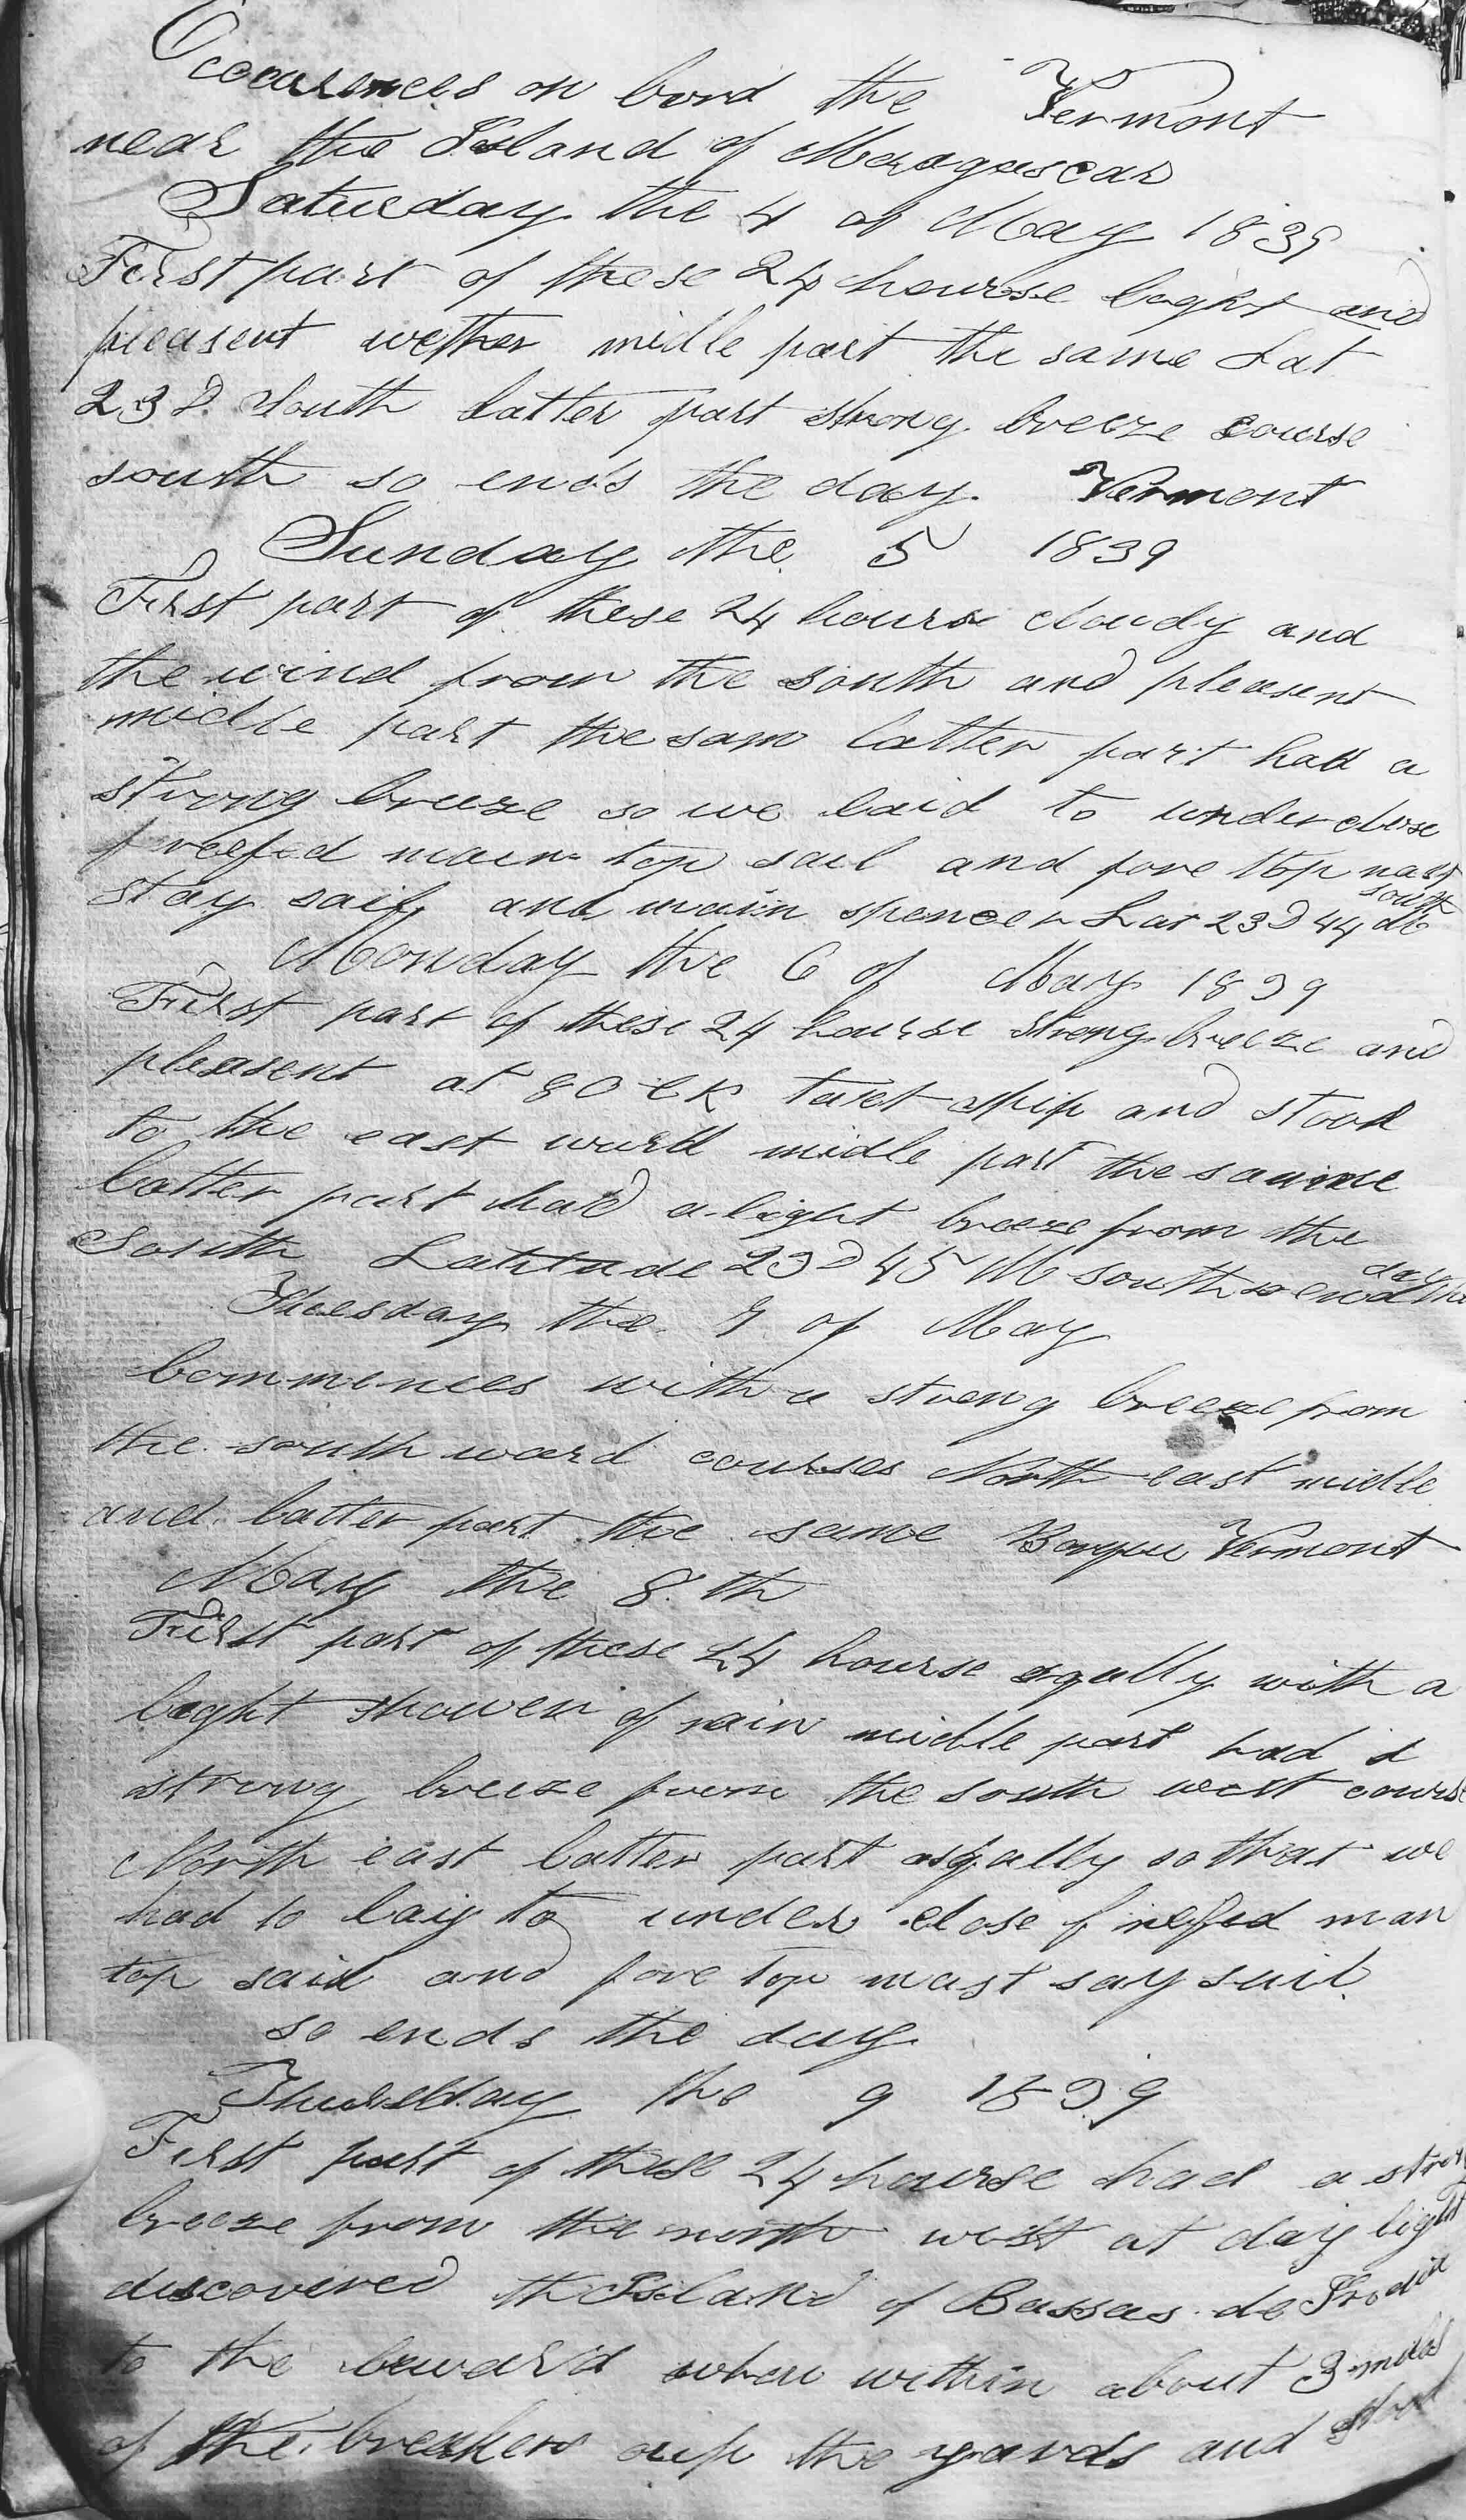 Occurences on bord the Vermont
near the Island of Madagascar
Saturday the 4 of May 1839
First part of these 24 hourse light and
pleasent wether midle part the same Lat
23 D South latter part strong breeze course
south so ends the day. Vermont
Sunday the 5 1839
First part of these 24 hours cloudy and
the wind from the south and pleasent
midle part the sam latter part had a
strong breeze so we laid to under close
reefed main top sail and fore top mast
stay sail and main spencer Lat 23 D 44 south
Monday the 6 of May 1839
First part of these 24 hourse strong breeze and
pleasent at 8 O ck tact ship and stood
to the east wurd midle part the same
latter part had a light breeze from the
South Latitude 23 D 45 M south so end the day
Tuesday the 7 of May
Commences with a strong breeze from
the south ward courses North east midle
and latter part the same Vermont
May the 8 th
First part of these 24 hourse sqully with a
light shower of rain midle part had a
strong breeze from the south west course
North east latter part sqally so that we
had to lay to under close reefed man
top sail and fore top mast say sail
so ends the day
Thursday the 9 1839
First part of these 24 hourse had a stron
breeze from the north west at day light
discovered the Island of Bassas de
to the leward when within about 3 miles
of the breakers the yards and stood